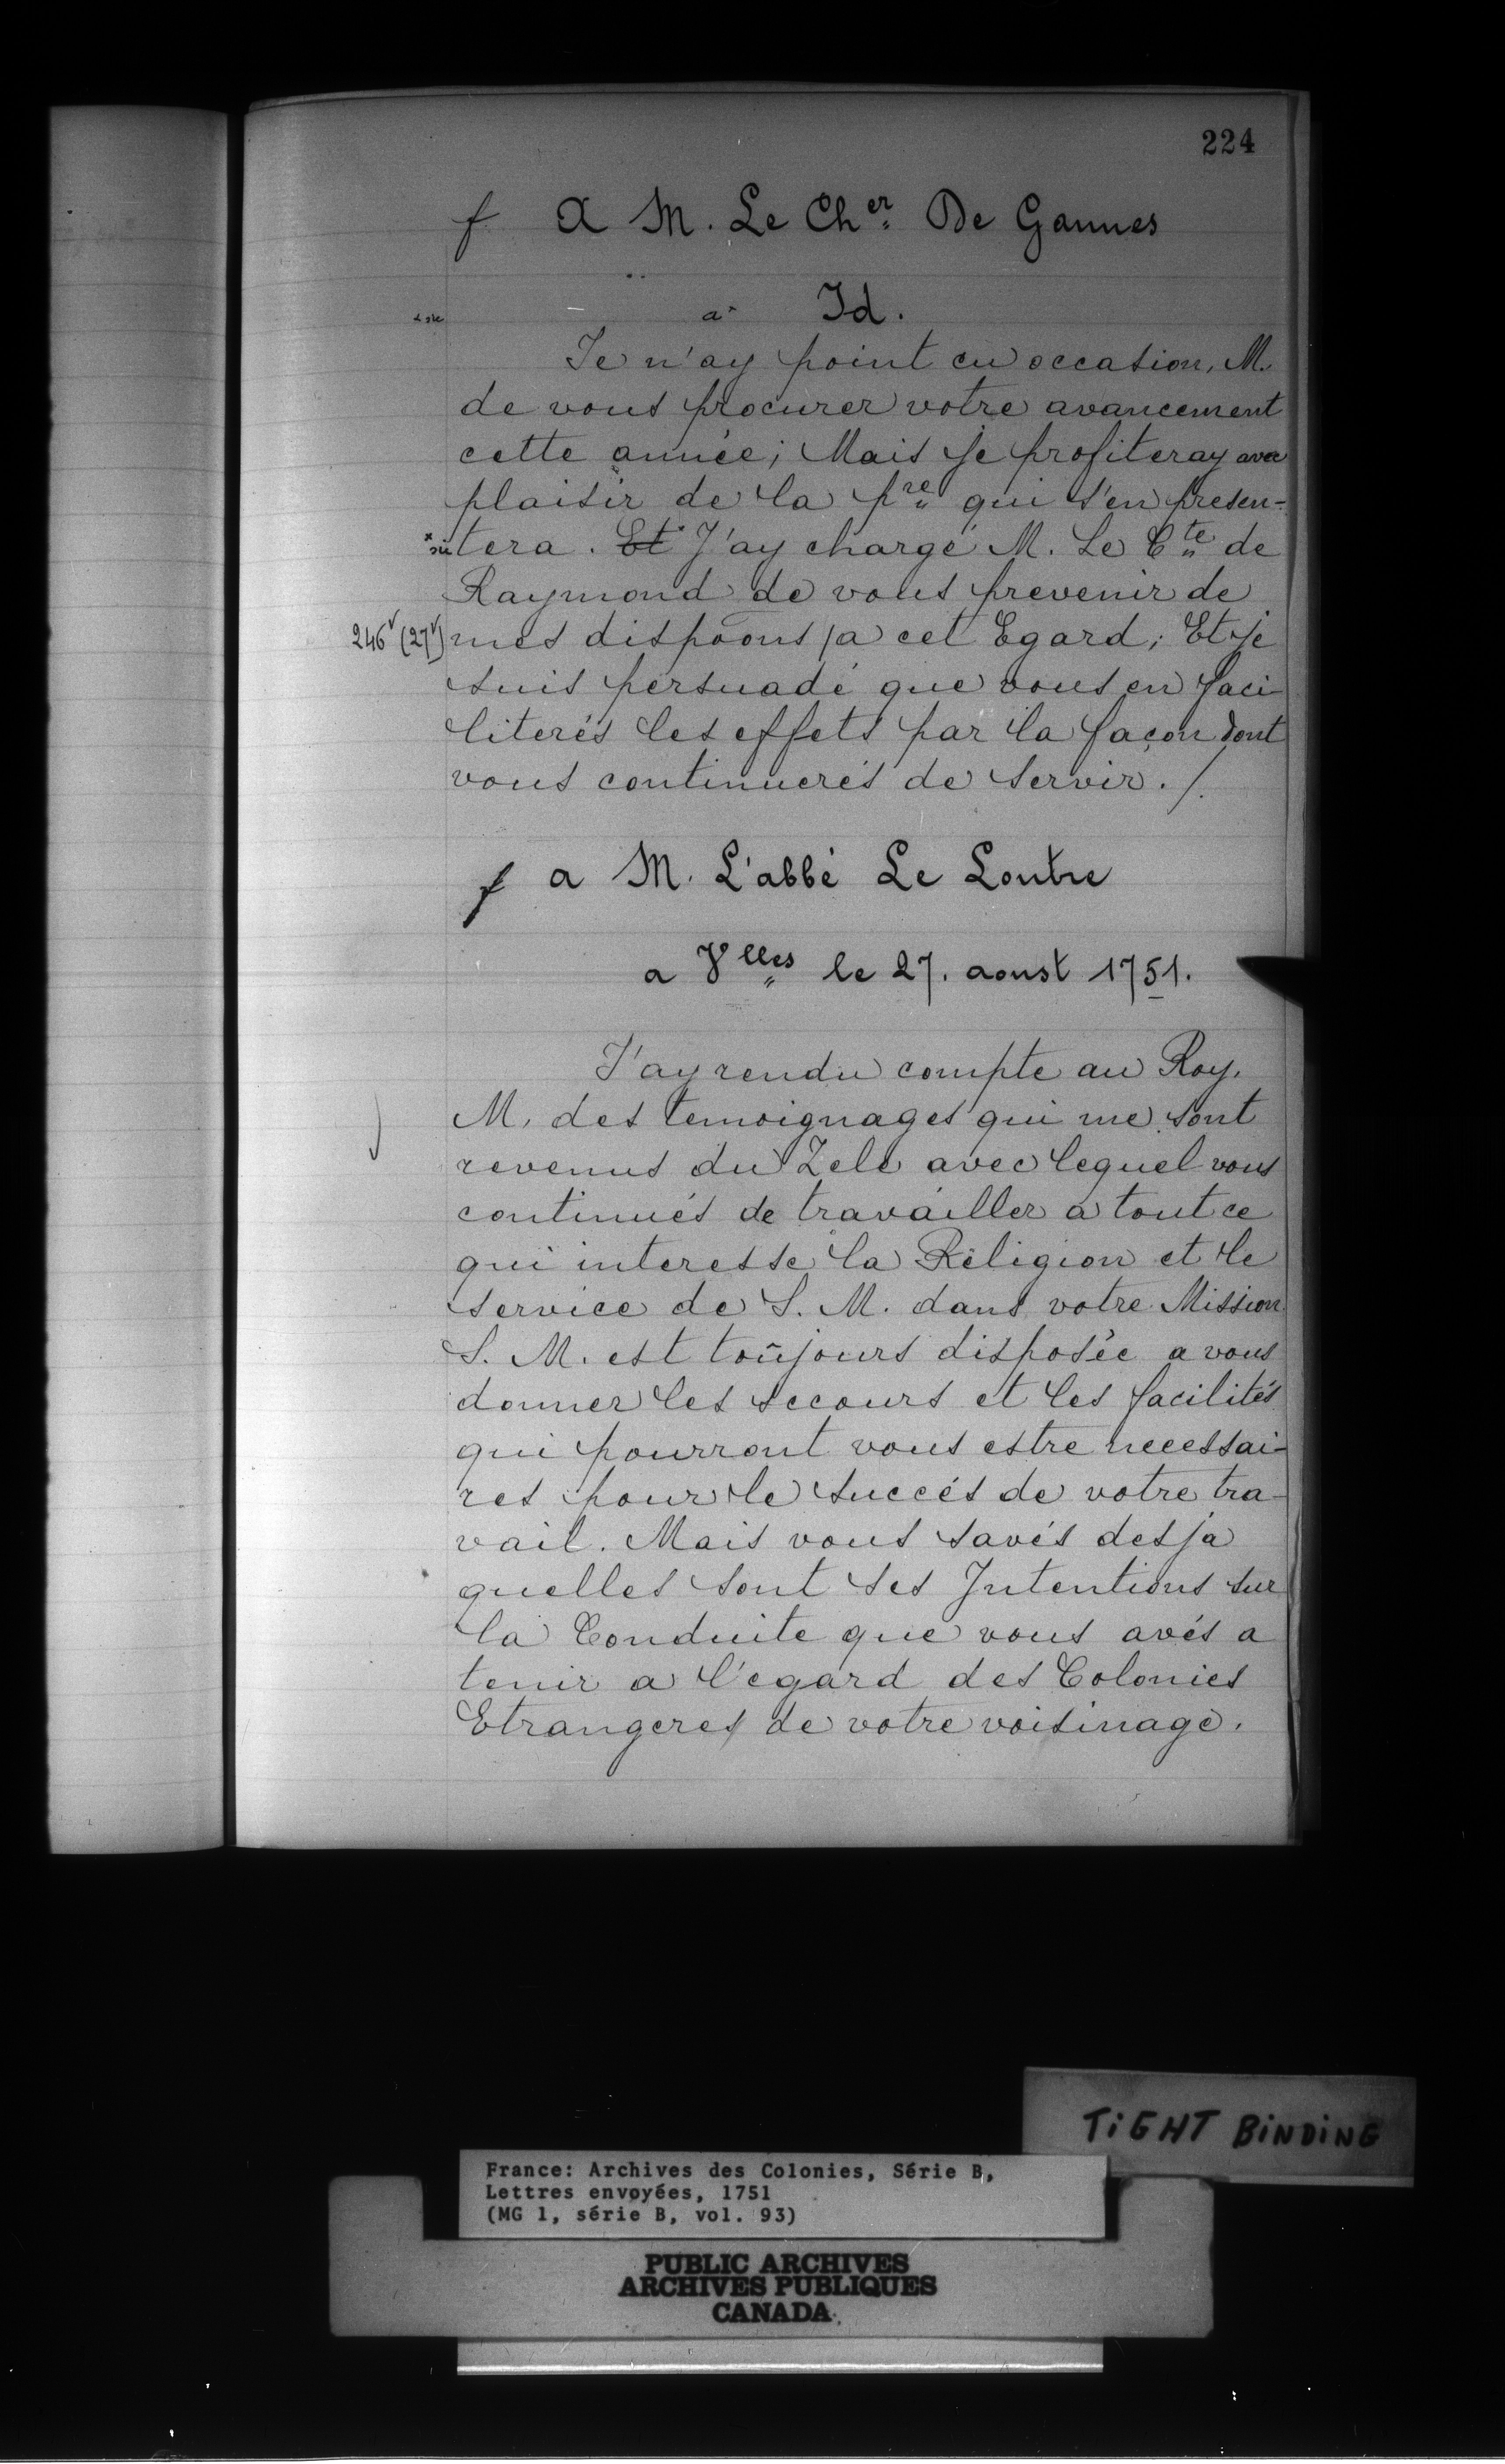 224
f A M. Le Ch.er De Gannes
a Id.
Je n'ay point eu occasion, M.
de vous procurer votre avancement
cette année; Mais je profiteray avec
plaisir de la pre qui s'en presen-
tera. Et J'ay chargé M. Le Cte de
Raymond de vous prevenir de
246v (27v) mes dispoons a cet Egard; Et je
suis persuadé que vous en faci-
literés les effets par la façon dont
vous continuerés de servir. /.
f a M. L'abbé Le Loutre
a Vlles le 27. aoust 1751.
J'ay rendu compte au Roy,
M. des temoignages qui me sont
revenus du Zele avec lequel vous
continués de travailler a tout ce
qui interesse la Religion et le
service de S. M. dans votre Mission
S. M. est toûjours disposée a vous
donner les secours et les facilités
qui pourront vous estre necessai-
res pour le succés de votre tra-
vail. Mais vous savés desja
quelles sont ses Intentions sur
la Conduite que vous avés a
tenir a l'egard des Colonies
Etrangeres de votre voisinage.
TiGHT BiNDiNG
France: Archives des Colonies, Série B,
Lettres envoyées, 1751
(MG 1, série B, vol. 93)
PUBLIC ARCHIVES
ARCHIVES PUBLIQUES
CANADA